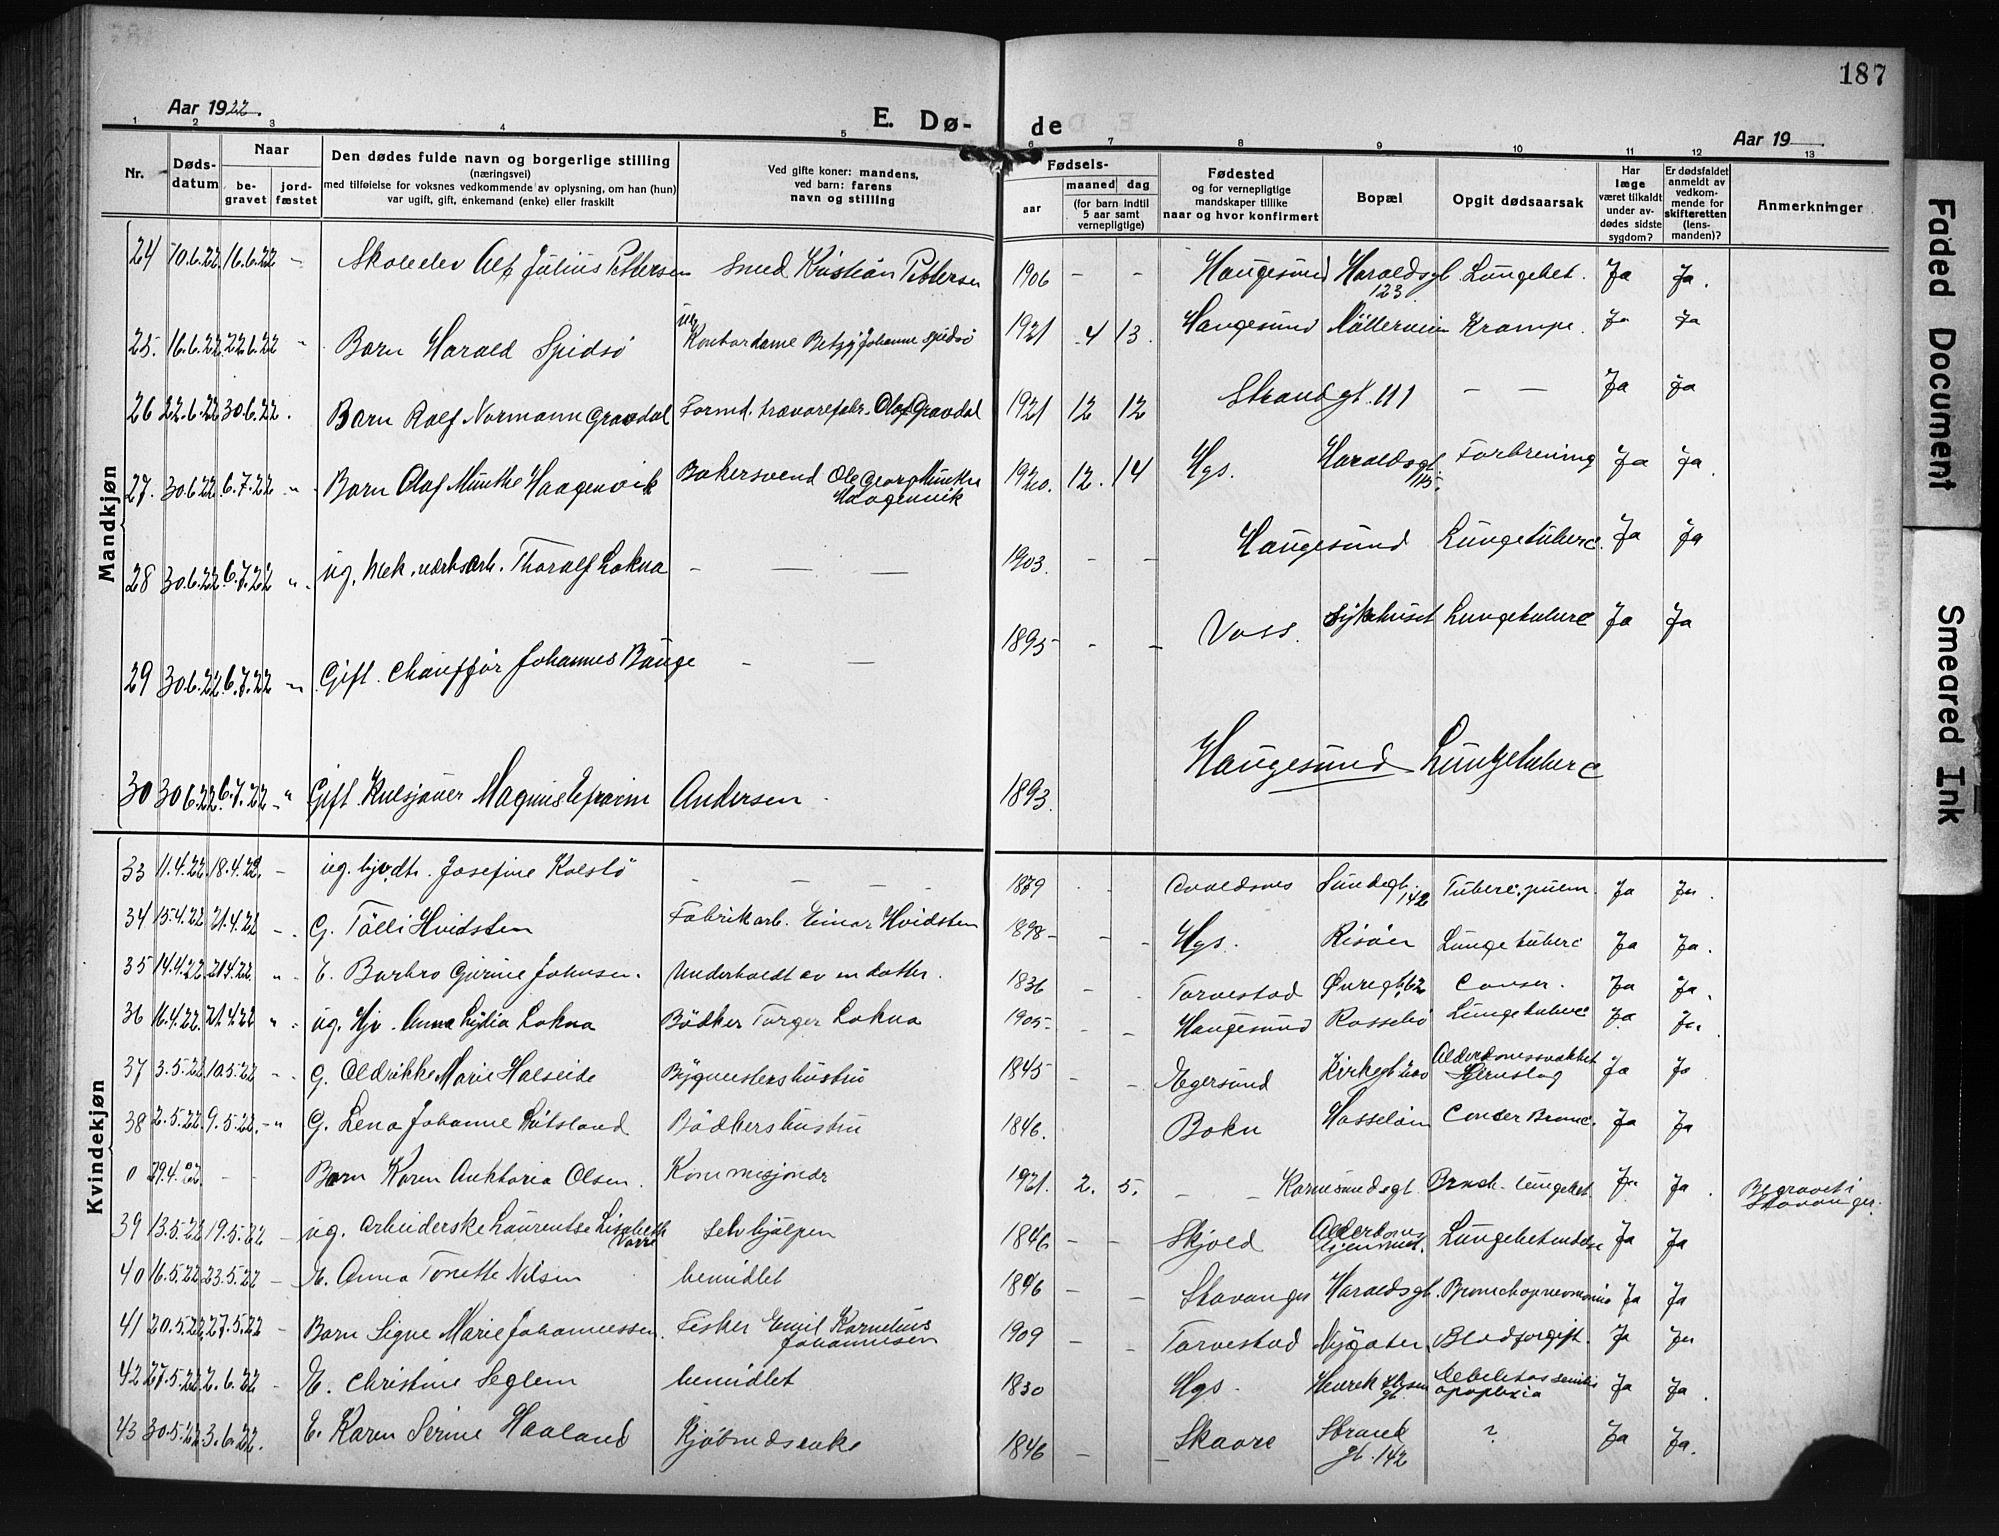 187
Aar 1922.
E. Dø-
de
Aar 19
1 2 3 4 5 6 7 8 9 10 11 12 13
Nr.
Døds-
datum
Naar
be-
gravet
jord-
fæstet
Den dødes fulde navn og borgerlige stilling
(næringsvei)
med tilføielse for voksnes vedkommende av oplysning, om han (hun)
var ugift, gift, enkemand (enke) eller fraskilt
Ved gifte koner: mandens,
ved barn: farens
navn og stilling
Fødsels-
aar
maaned
dag
(for barn indtil
5 aar samt
vernepligtige)
Fødested
og for vernepligtige
mandskaper tillike
naar og hvor konfirmert
Bopæl
Opgit dødsaarsak
Har
læge
været tilkaldt
under av-
dødes sidste
sygdom?
Er dødsfaldet
anmeldt av
vedkom-
mende for
skifteretten
(lens-
manden)?
Anmerkninger
Mandkjøn
24 10.6.22 16.6.22 - Skoleelev Alf Julius Pettersen Smed Kristian Pettersen 1906 - - Haugesund Haraldsgt. 123 Lungebet. Ja Ja.
25. 16.6.22 22.6.22 " Barn Harald Spidsö ug. Kontordame Betzy Johanne Spidsö 1921 4 13. Haugesund Möllerveien Krampe. Ja Ja
26 22.6.22 30.6.22. Barn Ralf Normann Gravdal Formd. trævarefabr. Olaf Gravdal 1921 12 12 Strandgt. 111 - - Ja Ja
27. 30.6.22 6.7.22 " Barn Olaf Munthe Haagenvik Bakersvend Ole Georg Munthe Haagenvik 1920. 12. 14 Hgs. Haraldsgt. 115. Forbrening Ja Ja.
28 30.6.22 6.7.22 " ug. Mek. værksarb. Thoralf Lokna - - - 1903. - - Haugesund Lungetuberc. Ja Ja
29 30.6.22 6.7.22 " Gift. Chauffør Johannes Bauge - - 1895 - - Voss. Sykehuset Lungetuberc Ja Ja
30 30.6.22 6.7.22 " Gift. Kulsjauer Magnus Efraim Andersen. 1893. Haugesund Lungetuberc
Kvindekjøn
33 11.4.22. 18.4.22. - ug. Josefine Kolstö - - - 1879 Avaldsnes Sundgt. 142 Tuberc. pulm. Ja Ja.
34 15.4.22 21.4.22 -. G. Tölli Hvidsten Fabrikarb. Einar Hvidsten 1898 - - - Hgs. Risöen Lungetuberc Ja Ja.
35 14.4.22 21.4.22 " E. Barbro Gurine Johnsen. Underholdt av en datter. 1836 - - Torvestad Øvregt. 62 Cancer. Ja Ja.
36 16.4.22. 21.4.22 " ug. Hjv. Anna Lydia Lokna Bödker Torger Lokna 1905 - - Haugesund Rossebö Lungetuberc Ja Ja.
37 3.5.22 10.5.22 -. G. Oldrikke Marie Halseide Bygmestershustru 1845 - - Egersund Kirkegt. 200 Alderdomssvakhet Hjerneslag Ja Ja
38 2.5.22 9.5.22. - " G. Lena Johanne Bödkershustru 1846. Bokn Hasselöen Cancer Ja Ja
0 29.4.22. - - Barn Karen Olsen. Kommisjonær 1921. 2. 5. - - Karmsundsgt. Bronch. lungebet. Ja Ja. Begravet i Stavanger.
39 13.5.22 19.5.22 - ug. Arbeiderske Laurentse Lisabeth Selvhjulpen 1846 - - Skjold Alderdomshjemmet. Lungebetendelse Ja Ja
40 16.5.22 23.5.22 - E. Anna Tonette Nilsen bemidlet 1846 - - Stavanger Haraldsgt. Bronchopneumonie Ja Ja
41 20.5.22 27.5.22 - Barn Signe Marie Johannessen. Fisker Emil Kornelius Johannessen 1909 - - Torvestad Nygaten Blodforgift. Ja Ja
42 27.5.22 2.6.22 - E. Christine Seglem bemidlet 1830 Hgs. Henrik Ibsen gt. Debilitas senilis apoplexia Ja Ja.
43 30.5.22 3.6.22. E. Karen Serine Haaland Kjöbmdsenke 1846 - - Skaare Strandgt. 142 ? Ja Ja.
Faded Document
Smeared Ink